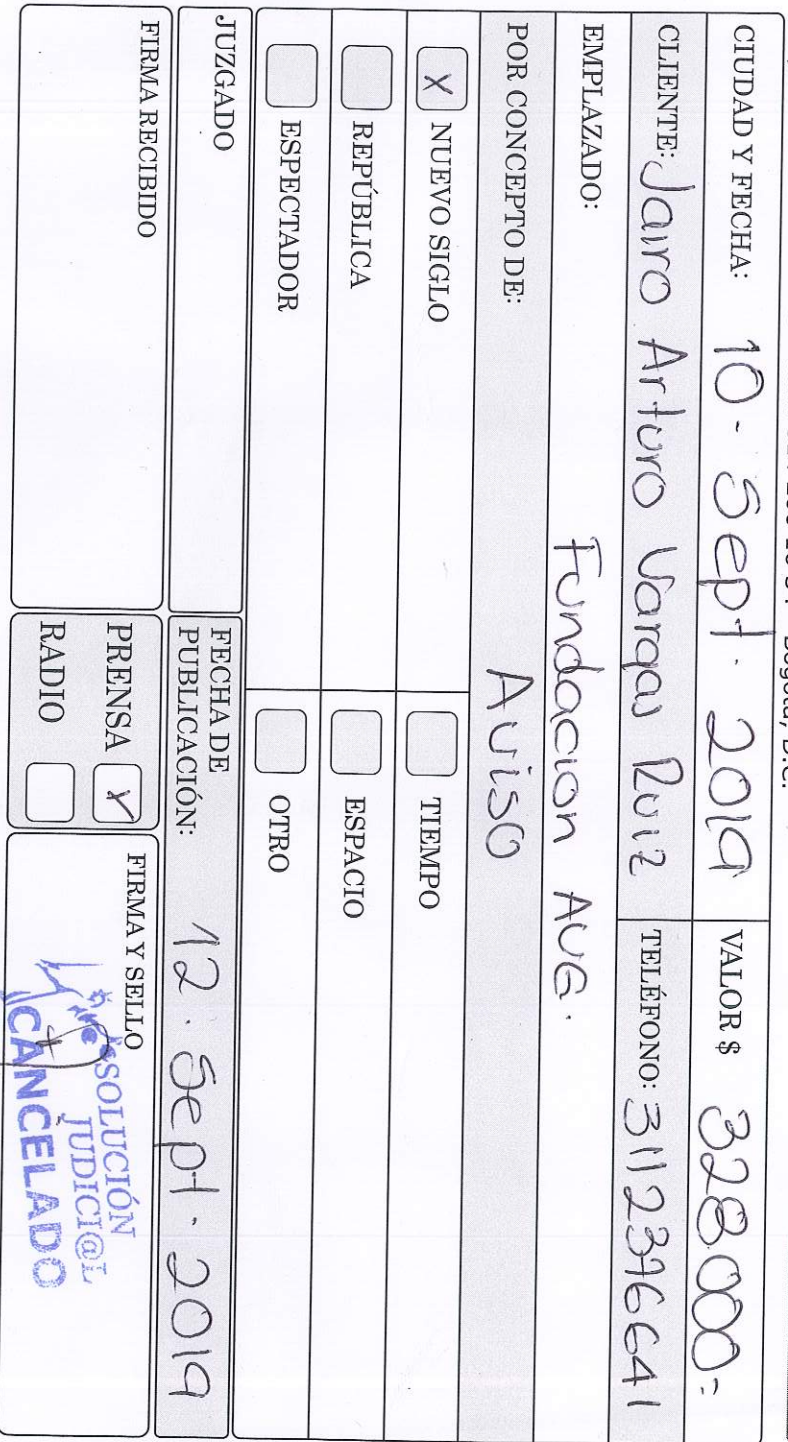 Bogotá, D.C.
CIUDAD Y FECHA: 10 - Sept. 2019 VALOR $ 328.000=
CLIENTE: Jairo Arturo Vargas Ruiz TELÉFONO: 3112376641
EMPLAZADO: Fundacion AVG.
POR CONCEPTO DE: Aviso
X NUEVO SIGLO TIEMPO
REPÚBLICA ESPACIO
ESPECTADOR OTRO
JUZGADO FECHA DE
PUBLICACIÓN: 12. Sept. 2019
FIRMA RECIBIDO PRENSA X FIRMA Y SELLO
RADIO
SOLUCIÓN
JUDICI@L
CANCELADO